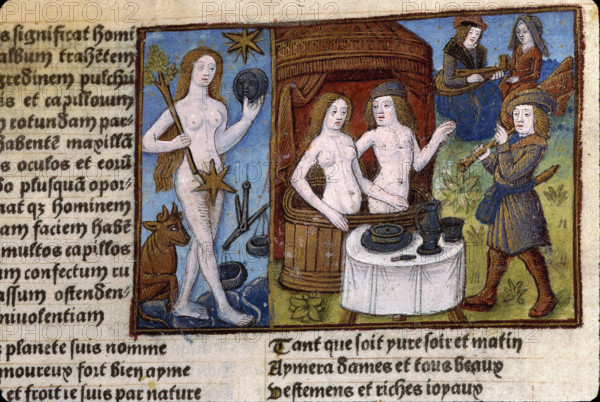 s significat homi
album trahētem
gredinem pulchu
s et capillorum
rotundam par-
habentē maxillā
s oculos et eorū
o plusquā opor-
nat qz hominem
am faciem habē
multos capillos
m confectum ru
assum ostenden-
niuolentiam
planete suis nomme
moureux fort bien ayme
et froit ie suis par nature
Tant que soit yure soir et matin
Aymera dames et tous beaux
Vestemens et riches ioyaux